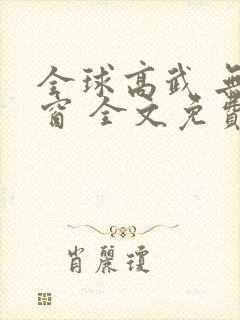 全球高武
窗 全文免
肖麗瓊